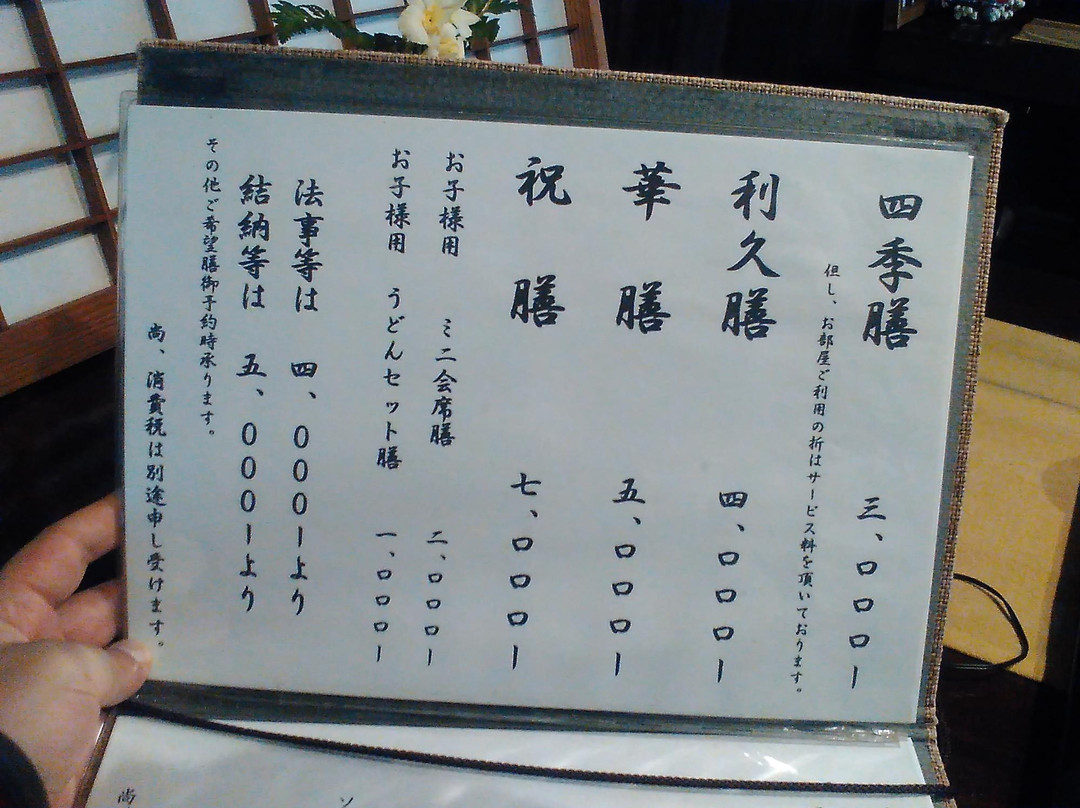 四季膳 三、〇〇〇ー
但し、お部屋ご利用の折はサービス料を頂いております。
利久膳 四、〇〇〇ー
華膳 五、〇〇〇ー
祝膳 七、〇〇〇ー
お子様用 ミニ会席膳 二、〇〇〇ー
お子様用 うどんセット膳 一、〇〇〇ー
法事等は 四、〇〇〇ーより
結納等は 五、〇〇〇ーより
その他ご希望膳御予約時承ります。
尚、消費税は別途申し受けます。
尚